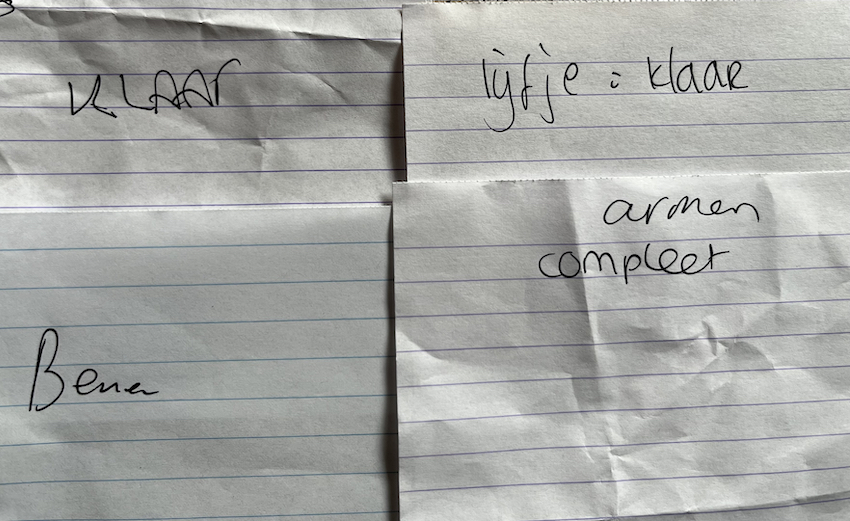 KLAAR
lijfje : klaar
armen
compleet
Benen